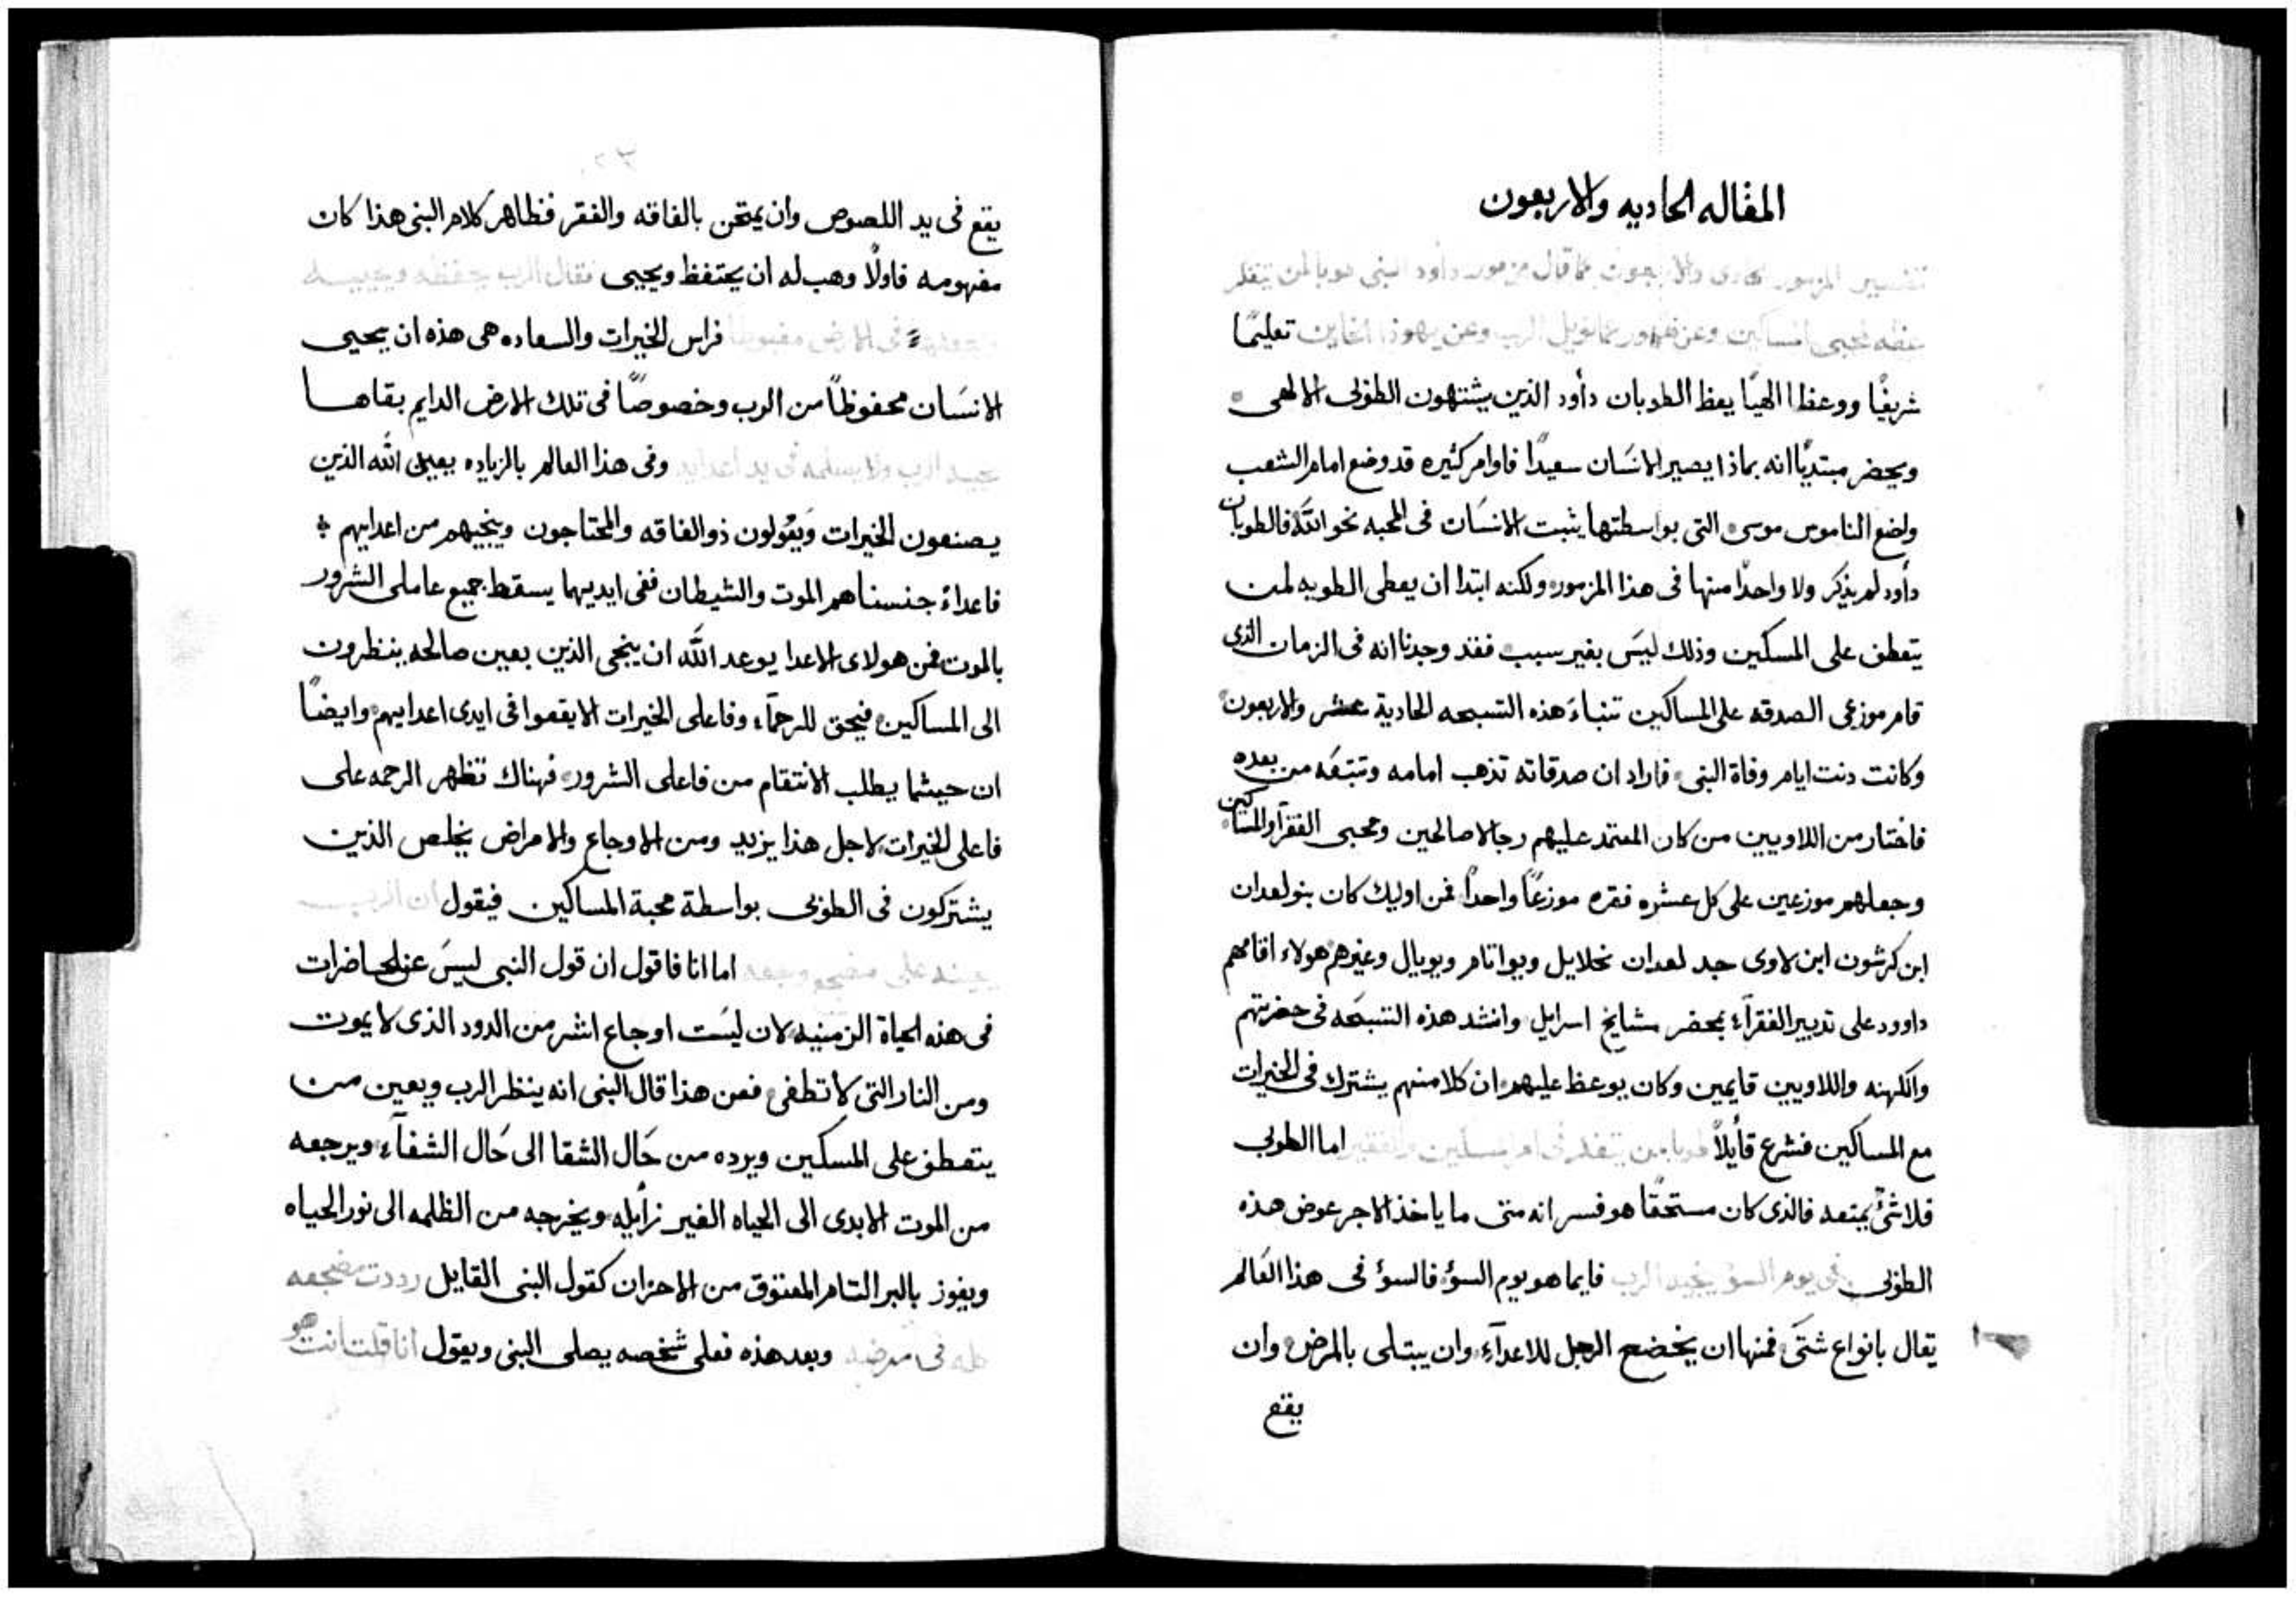 المقاله الحاديه والاربعون
تفسير المزمور الحادى والاربعون مما قال مزمور داود النبى طوبا لمن يتفكر
تعليمًا
شريفًا ووعظا الهيًا يعظ الطوبان دأود الذين يشتهون الطوبى الالهى
ويحضر مبتديًا انه بماذا يصير الانسان سعيدًا فاوامر كثيره قد وضع امام الشعب
واضع الناموس موسى التى بواسطتها يثبت الانسان فى المحبه نحو الله فالطوبان
دأود لم يذكر ولا واحدًا منها فى هذا المزمور ولكنه ابتدا ان يعطى الطوبه لمن
يتعطف على المسكين وذلك ليسَ بغير سبب فقد وجدنا انه فى الزمان الذى
قام موزعى الصدقه على المساكين تنباء هذه التسبحه الحادية عشر والاربعون
وكانت دنت ايام وفاة النبى فاراد ان صدقاته تذهب امامه وتتبعه من بعده
فاختار من اللاويين من كان المعتمد عليهم رجالا صالحين ومحبى الفقرآ والمساكين
وجعلهم موزعين على كل عشره فقره موزعًا واحدًا فمن اوليك كان بنو لعدان
ابن كرشون ابن لاوى جد لعدان نخلايل ويواتام ويويال وغيرهم هولاء اقامهم
داوود على تدبير الفقرآء بمحضر مشايخ اسرايل وانشد هذه التسبحه فى حضرتهم
والكهنه واللاويين قايمين وكان يوعظ عليهم ان كلا منهم يشترك فى الخيرات
مع المساكين فشرع قأيلاً طوبا من يتفكر فى امر المسكين والفقير اما الطوبى
فلا شئ يمنعه فالذى كان مستحقًا هو فسر انه متى ما ياخذ الاجر عوض هذه
الطوبى فى يوم السؤ ينجيه الرب فايما هو يوم السؤ فالسؤ فى هذا العالم
يقال بانواع شتى فمنها ان يخضع الرجل للاعدآء وان يبتلى بالمرض وان
يقع
يقع فى يد اللصوص وان يمتحن بالفاقه والفقر فظاهر كلام النبى هذا كان
مفهومه فاولًا وهب له ان يحتفظ ويحيى فقال الرب يحفظه ويحييه
ويجعله فى الارض مغبوطا فراس الخيرات والسعاده هى هذه ان يحيى
الانسَان محفوظاً من الرب وخصوصًا فى تلك الارض الدايم بقاها
يجيد الرب ولا يسلمه فى يد اعدايه وفى هذا العالم بالزياده يعين الله الذين
يصنعون الخيرات وَيَعُولون ذو الفاقه والمحتاجون وينجيهم من اعدايهم
فاعداء جنسنا هم الموت والشيطان ففى ايديهما يسقط جميع عاملى الشرور
بالموت فمن هولاى الاعدا يوعد الله ان ينجى الذين بعين صالحه ينظرون
الى المساكين فيحق للرحمآء وفاعلى الخيرات الا يقعوا فى ايدى اعدايهم وايضًا
ان حيثما يطلب الانتقام من فاعلى الشرور فهناك تظهر الرحمه على
فاعلى الخيرات لاجل هذا يزيد ومن الاوجاع والامراض يخلص الذين
يشتركون فى الطوبى بواسطة محبة المساكين فيقول ان الرب
يعينه على مضجع وجعه اما انا فاقول ان قول النبى ليسَ عن الحاضرات
فى هذه الحياة الزمنيه لان ليسَت اوجاع اشر من الدود الذى لا يموت
ومن النار التى لا تطفى فعن هذا قال النبى انه ينظر الرب ويعين من
يتعطف على المسكين ويرده من حَال الشقا الى حَال الشفآء ويرجعه
من الموت الابدى الى الحياه الغير زأيله ويخرجه من الظلمه الى نور الحياه
ويفوز بالبر التام المعتوق من الاحزان كقول النبى القايل رددت مضجعه
كله فى مرضه وبعد هذه فعلى شخصه يصلى النبى ويقول انا قلت انت هو